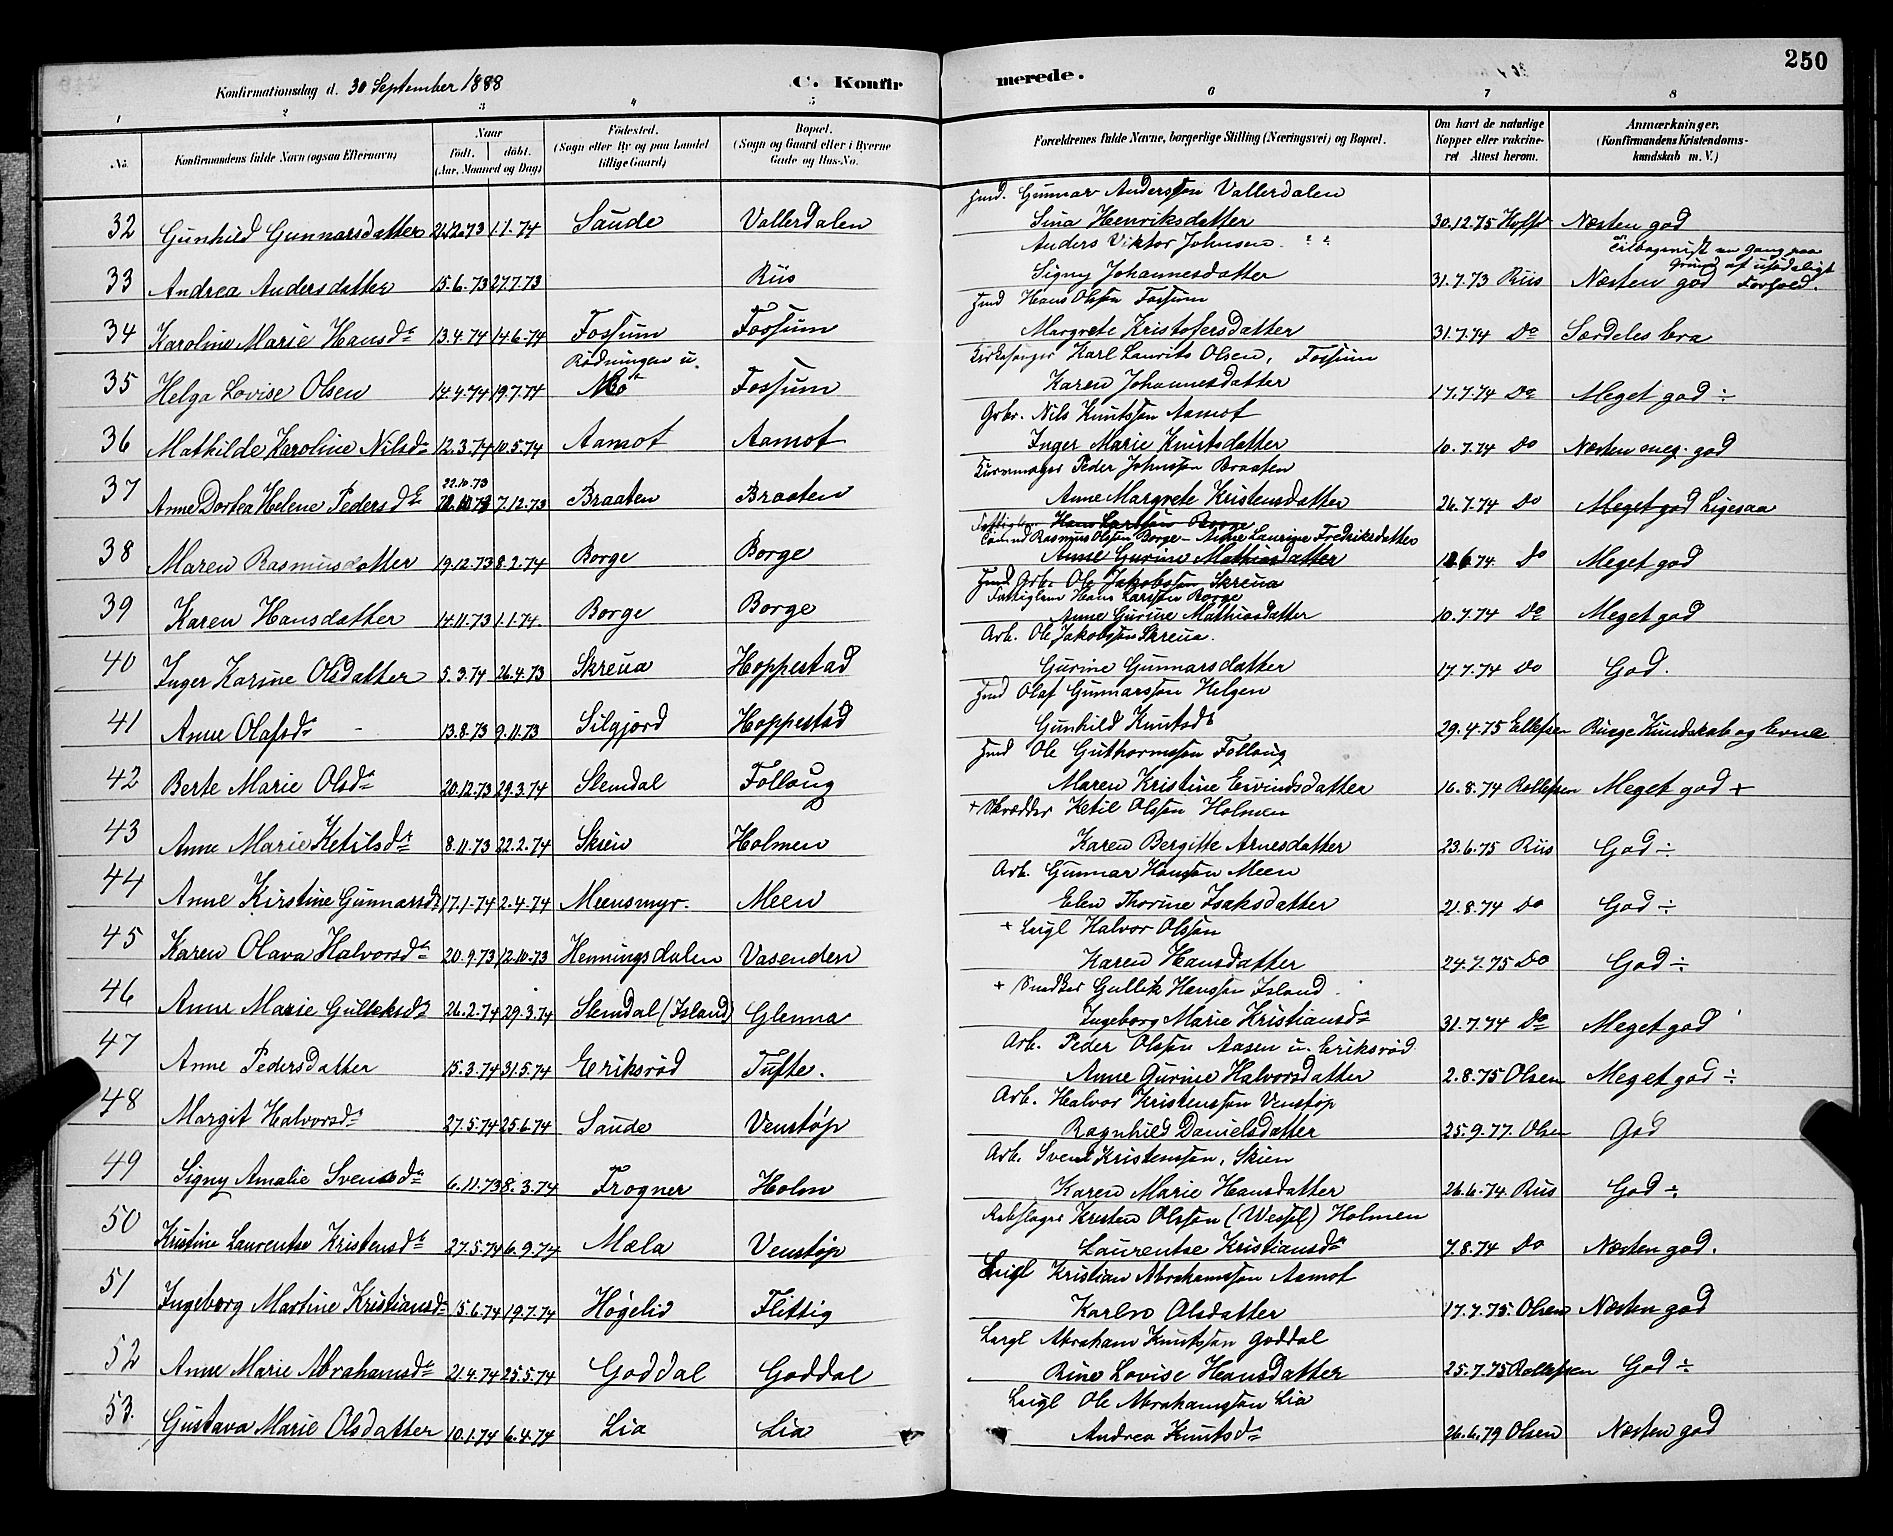 250
Konfirmationsdag d. 30 September 1888 C. Konfirmerede.
1 2 3 4 5 6 7 8
No. Konfirmandens fulde Navn (ogsaa Efternavn) Naar födt. döbt. (Aar, Maaned og Dag) Födested. (Sogn eller By og paa Landet tillige Gaard) Bopæl. (Sogn og Gaard eller i Byerne Gade og Hus-No. Forældrenes fulde Navne, borgerlige Stilling (Næringsvei) og Bopæl. Om havt de naturlige Kopper eller vakcineret Attest herom. Anmærkninger. (Konfirmandens Kristendomskundskab m. V.)
Hmd. Gunnar Anderssen Vallerdalen
32 Gunhild Gunnarsdatter 21.12.73 1.1.74 Saude Vallerdalen Sina Henriksdatter 30.12.75 Næsten god
Anders Viktor Johnsen " "
33 Andrea Andersdatter 15.6.73 27.7.73 Riis Signy Johannesdatter 31.7.73 Riis Næsten god Tilbagevist en Gang paa Grund af usædeligt Forhold.
Hmd Hans Olsen Fossum
34 Karoline Marie Hansdr 13.4.74 14.6.74 Fossum Fossum Margrete Kristofersdatter 31.7.74 Do Særdeles bra
Kirkesanger Karl Laurits Olsen, Fossum
35 Helga Lovise Olsen 14.4.74 19.7.74 Rødningen u. Mo Fossum Karen Johannesdatter 17.7.74 Do Meget god ÷
Grbr. Nils Knutssen Aamot
36 Mathilde Karoline Nilsdr 12.3.74 10.5.74 Aamot Aamot Inger Marie Knutsdatter 10.7.74 Do Næsten meg. god
Peder Johnssen Braaten
37 Anne Dortea Helene Pedersdr 22.10.73 22.10.73 7.12.73 Braaten Braaten Anne Margrete Kristensdatter 26.7.74 Do Meget god Ligesaa
Fattiglem Hans Larssen Borge
Rasmus Olsen Borge - Anne Laurine Fredriksdatter
38 Maren Rasmusdatter 19.12.73 8.2.74 Borge Borge Anne Gurine Mathiasdatter 74 Do Meget god
Hmd Arb. Ole Jakobssen Skreua
Fattiglem Hans Larssen Borge
39 Karen Hansdatter 14.11.73 1.1.74. Borge Borge Anne Gurine Mathiasdatter 10.7.74 Do Meget god
Arb. Ole Jakobssen Skreua.
40 Inger Karine Olsdatter 5.3.74 26.4.73 Skreua Hoppestad Gurine Gunnarsdatter 17.7.74 Do God.
Hmd Olaf Gunnarssen Helgen
41 Anne Olafsdr - 13.8.73 9.11.73 Silgjord Hoppestad Gunhild Knutsdr 29.4.75 Ellefsen Ringe Kundskab og Evne
Hmd Ole Guthormssen Follaug
42 Berte Marie Olsdr 20.12.73 29.3.74 Slemdal Follaug Maren Kristine Eivindsdatter 16.8.74 Rollefsen Meget god +
+ Skrædder Ketil Olssen Holmen
43 Anne Marie Ketilsdr 8.11.73 22.2.74 Skien Holmen Karen Bergitte Arnesdatter 23.6.75 Riis God ÷
Arb. Gunnar Hansen Meen
44 Anne Kirstine Gunnarsdr 17.1.74 2.4.74 Meensmyr. Meen Elen Thorine Isaksdatter 21.8.74 Do God ÷
+ Leigl Halvor Olssen
45 Karen Olava Halvorsdr 20.9.73 12.10.73 Henningsdalen Vasenden Karen Hansdatter 24.7.75 Do God ÷
+ Snedker Gullik Hanssen Island
46 Anne Marie Gulleksdr 26.2.74 29.3.74 Slemdal (Island) Glenna Ingeborg Marie Kristiansdr 31.7.74 Do Meget god
Arb. Peder Olssen Aasen u. Eriksrød
47 Anne Pedersdatter 15.3.74 31.5.74 Eriksrød Tufte. Anne Gurine Halvorsdatter 2.8.75 Olsen Meget god ÷
Arb. Halvor Kristenssen Venstøp
48 Margit Halvorsdr 27.5.74 25.6.74 Saude Venstøp Ragnhild Danielsdatter 25.9.77. Olsen God
Arb. Svend Kristenssen, Skien
49 Signy Amalie Svensdr 6.11.73 8.3.74 Frogner Holm Karen Marie Hansdatter 26.6.74. Riis God ÷
Rebslager Kristen Olssen (Wessel) Holmen
50 Kristine Laurentse Kristensdr 27.5.74 6.9.74 Mæla Venstøp Laurentse Kristiansdr 7.8.74 Do Næsten god.
Leigl Kristian Abrahamssen Aamot
51 Ingeborg Martine Kristiansdr 15.6.74 19.7.74 Høgelid Flittig Karen Olsdatter 17.7.75. Olsen Næsten god
Leigl Abraham Knutssen Goddal
52 Anne Marie Abrahamsdr 21.4.74 25.5.74 Goddal Goddal Rine Lovise Hansdatter 25.7.75 Rollefsen God ÷
Leigl Ole Abrahamssen Lia
53. Gustava Marie Olsdatter 10.1.74 6.4.74 Lia Lia Andrea Knutsdr 26.6.79 Olsen Næsten god